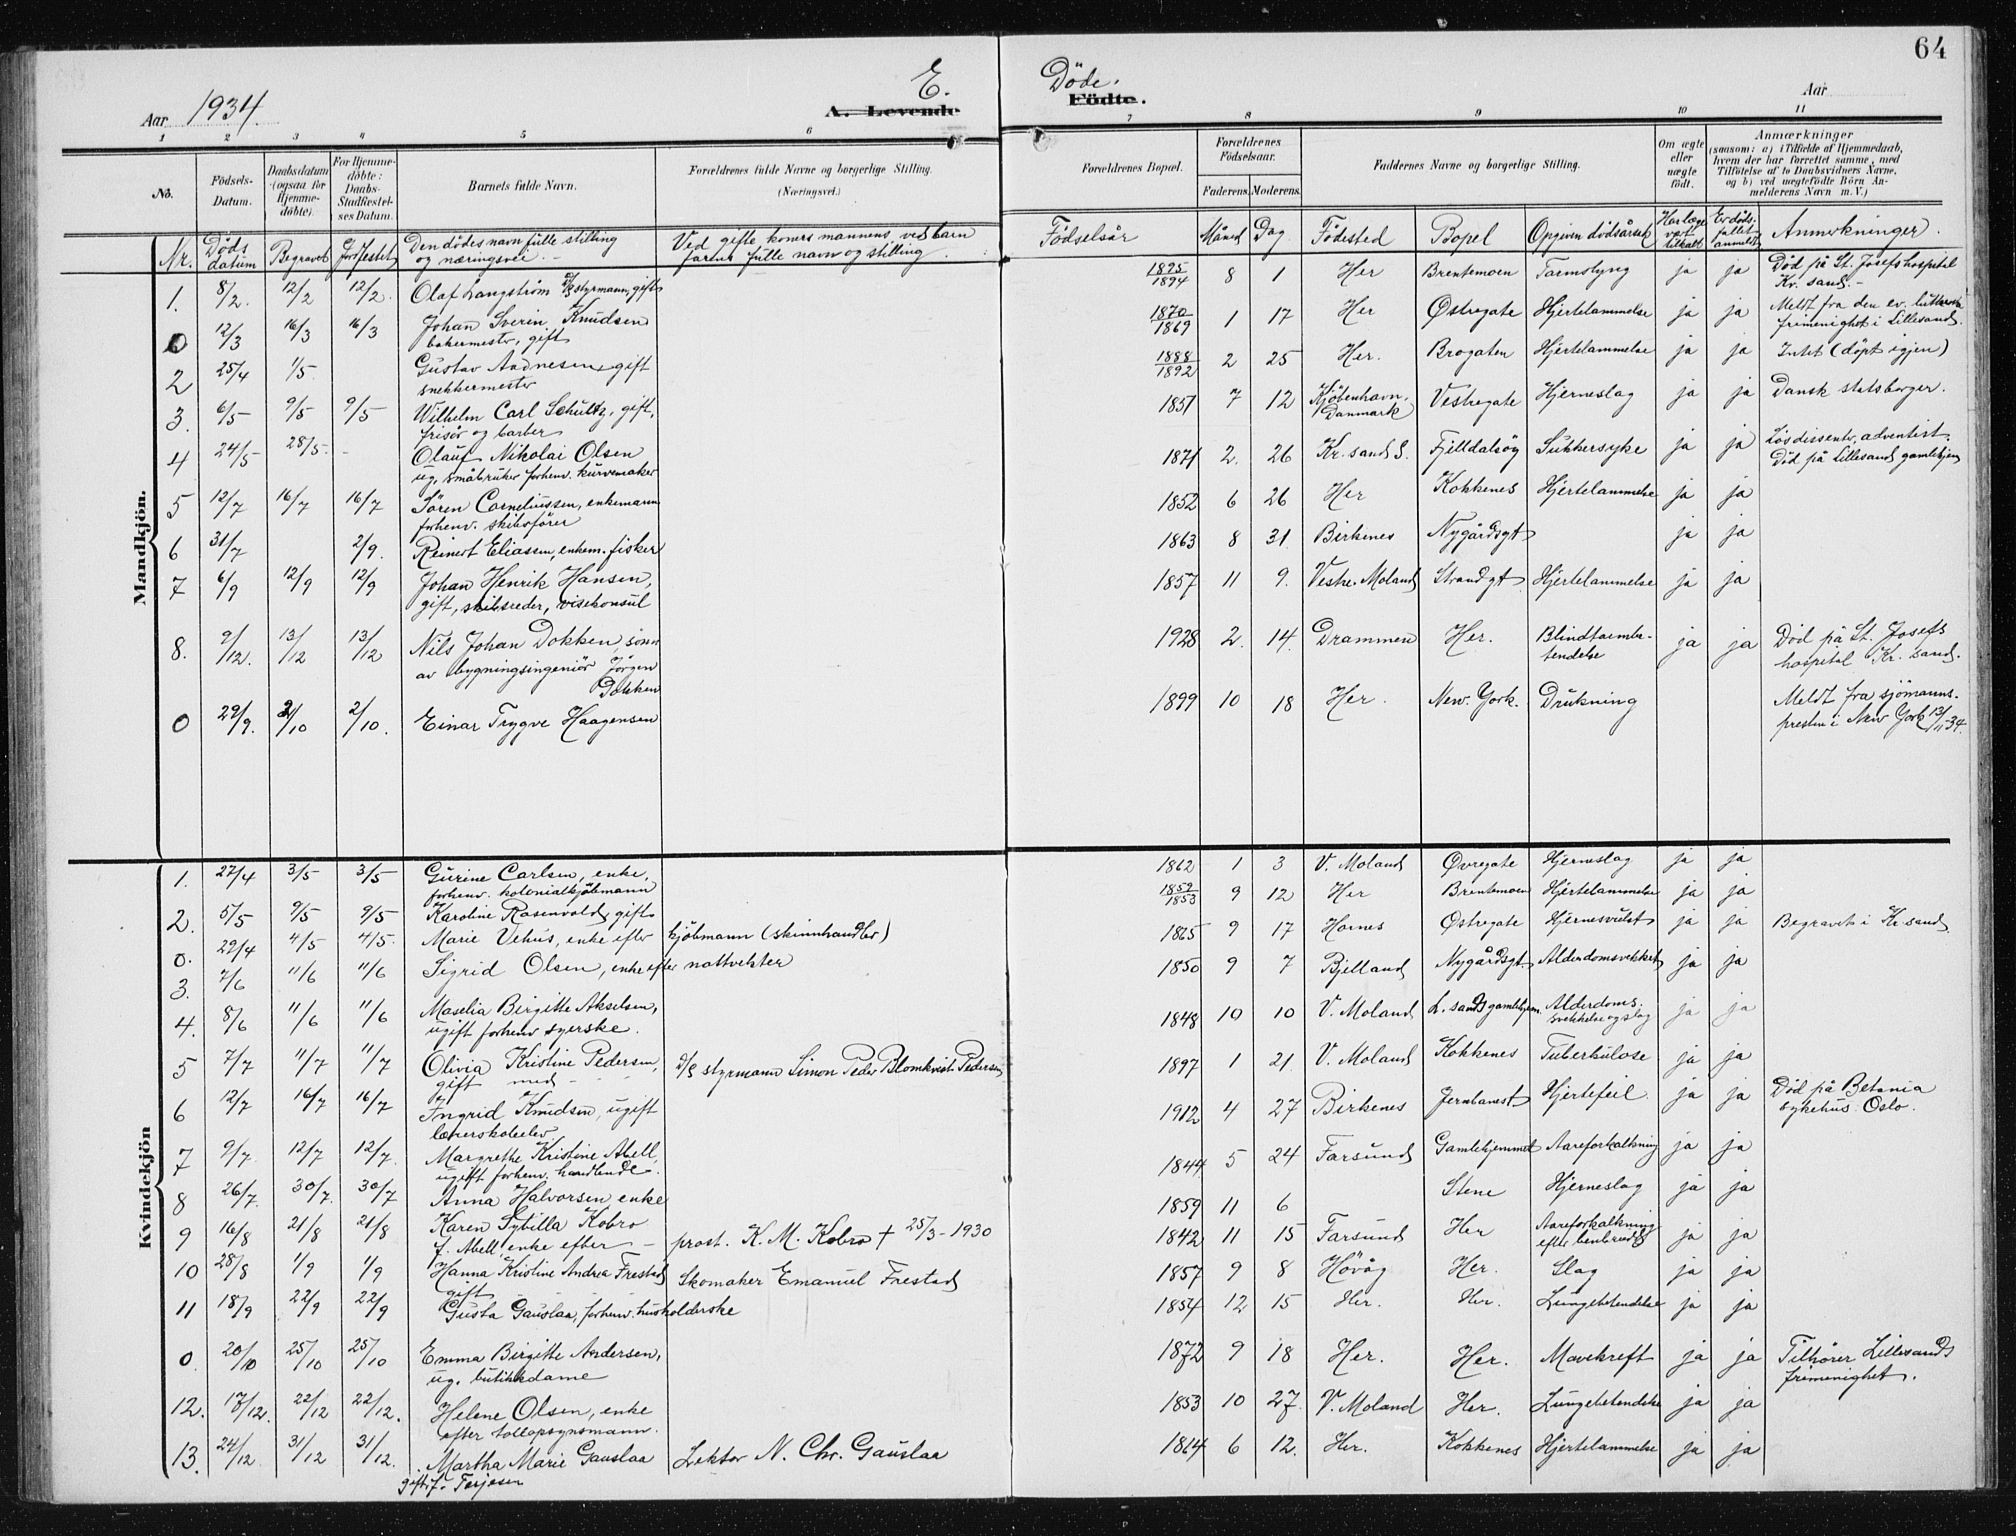 64
Aar 1934.
E. Döde.
A. Levende Födte.
Aar
1 2 3 4 5 6 7 8 9 10 11
No.
Födsels-Datum.
Daabsdatum (ogsaa for Hjemme-döbte)
For Hjemme-döbte: Daabs-Stadfæstel-ses Datum.
Barnets fulde Navn.
Forældrenes fulde Navne og borgerlige Stilling. (Næringsvei.)
Forældrenes Bopæl.
Forældrenes Födselsaar.
Faderens. Moderens.
Faddernes Navne og borgerlige Stilling.
Om ægte eller uægte födt.
Anmærkninger (saasom: a) i Tilfælde af Hjemmedaab, hvem der har forrettet samme, med Tilföielse af to Daabsvidners Navne, og b) ved uægtefödte Börn Anmelderens Navn m. V.)
Nr. Döds datum Begravet Jordfestet Den dödes navn fulle stilling og næringsvei Ved gifte koners mannens, ved barn farens fulle navn og stilling.
Födselsår Måned Dag Födested Bopel Opgiven dödsårsak Har læge vært tilkalt Er dödsfallet anmeldt Anmerkninger.
Mandkjön.
1. 8/2. 12/2 12/2. Olaf Langström D/S styrmann, gift 1895/1894 8 1 Her Brentemoen Tarmslyng ja ja Död på St. Josefs hospital Kr. sand.
0 12/3 16/3 16/3 Johan Sverin Knudsen bakermester, gift 1870/1869 1 17 Her Østregate Hjertelammelse ja ja Meldt fra den ev. lutherske frimenighet i Lillesand.
2 25/4 1/5. Gustav Aadnesen, gift snekkermester 1888/1892 2 25 Her. Brogaten Hjertelammelse ja ja Intet (döpt igjen)
3. 6/5 9/5 9/5 Wilhelm Carl Schultz, gift, frisör og barber 1851 7 12 Kjöbenhavn, Danmark Vestregate Hjerneslag ja ja Dansk statsborger.
4 24/5 28/5 - Olauf Nikolai Olsen ug, småbruker forhenv. kurvemaker 1871 2. 26 Kr. sand S. Fjelldalsög Sukkersyke ja ja Lösdissenter, adventist. Död på Lillesand gamlehjem
5 12/7 16/7 16/7 Sören Corneliussen, enkemann forhenv. skibsförer 1852 6 26 Her Kokkenes Hjertelammelse ja ja
6 31/7 2/9. Reinert Eliassen, enkem. fisker 1863 8 31. Birkenes Nygårdsgt ja ja
7 6/9 12/9 12/9 Johan Henrik Hansen, gift, skibsreder, visekonsul 1857 11 9. Vestre-Moland Strandgt Hjertelammelse ja ja
8. 9/12. 13/12 13/12 Nils Johan Dokken, sönn av bygningsingeniör Jörgen Dokken 1928 2. 14. Drammen Her. Blindtarmbetendelse ja ja Död på St. Josefs hospital Kr. sand.
0 29/9. 2/10 2/10. Einar Trygve Haagensen 1899 10 18 Her. New-York. Drukning Meldt fra sjömannspresten i New York 13/11-34.
Kvindekjön
1. 27/4 3/5 3/5 Gurine Carlsen, enke, forhenv. kolonialkjöbmann 1862 1 3 V. Moland Øvregate Hjerneslag ja ja
2. 5/5 9/5 9/5 Karoline Rosenvold, gift 1852/1853 9 12 Her Brentemoen Hjertelammelse ja ja
0. 29/4 4/5 4/5. Marie Vehus, enke efter kjöbmann (skinnhandler) 1865 9 17 Hornes Østregate Hjernesvulst ja ja Begravet i Kr sand
3. 7/6 11/6 11/6 Sigrid Olsen, enke efter nattvekter 1850 9 7 Bjelland Nygårdsgt. Alderdomsvekket ja ja
4. 8/6 11/6 11/6 Maselia Birgitte Akselsen, ugift forhenv syerske. 1848 10 10 V. Moland L. sands gamlehjem. Alderdomssvekkelse og slag ja ja
5 7/7 11/7 11/7 Olivia Kristine Pedersen, gift med - D/S styrmann Simon Peder Blomkvist Pedersen 1897 1 21. V. Moland Kokkenes Tuberkulose ja ja
6 12/7 16/7 16/7 Ingrid Knudsen, ugift lærerskoleelev 1912 4 27 Birkenes Jernbanest Hjertefeil. ja ja Död på Betania sykehus. Oslo.
7 9/7. 12/7 12/7. Margrethe Kristine Abell, ugift forhenv. handlende. 1844 5 24 Farsund Gamlehjemmet Aareforkalkning ja ja
8 26/7. 30/7. 30/7 Anna Halvorsen enke 1859 11 6 Stene Hjerneslag ja ja
9 16/8 21/8 21/8 Karen Sybilla Kobro f. Abell, enke efter - prost. K. M. Kobro † 25/3-1930 1842 11 15 Farsund Her Aareforkalkning efter benbrudd ja ja
10 28/8 1/9 1/9 Hanna Kristine Andrea Frestad gift Skomaker Emanuel Frestad 1857 9 8 Hövåg Her. Slag ja ja
11 18/9 22/9 22/9 Gusta Gauslaa, forhenv. husholderske 1854 12 15 Her. Her. Lungebetendelse ja ja
0. 20/10 25/10 25/10 Emma Birgitte Andersen, ug. butikkdame 1872 9 18 Her. Her. Mavekreft ja ja Tilhörer Lillesands frimenighet.
12. 17/12. 22/12 22/12. Helene Olsen, enke efter tollopsynsmann. 1853 10 27. V. Moland Her. Lungebetendelse ja ja
13. 24/12 31/12 31/12. Martha Marie Gauslaa gift f. Terjesen Lektor N. Chr. Gauslaa 1864 6 12. Her. Kokkenes Hjertelammelse ja ja